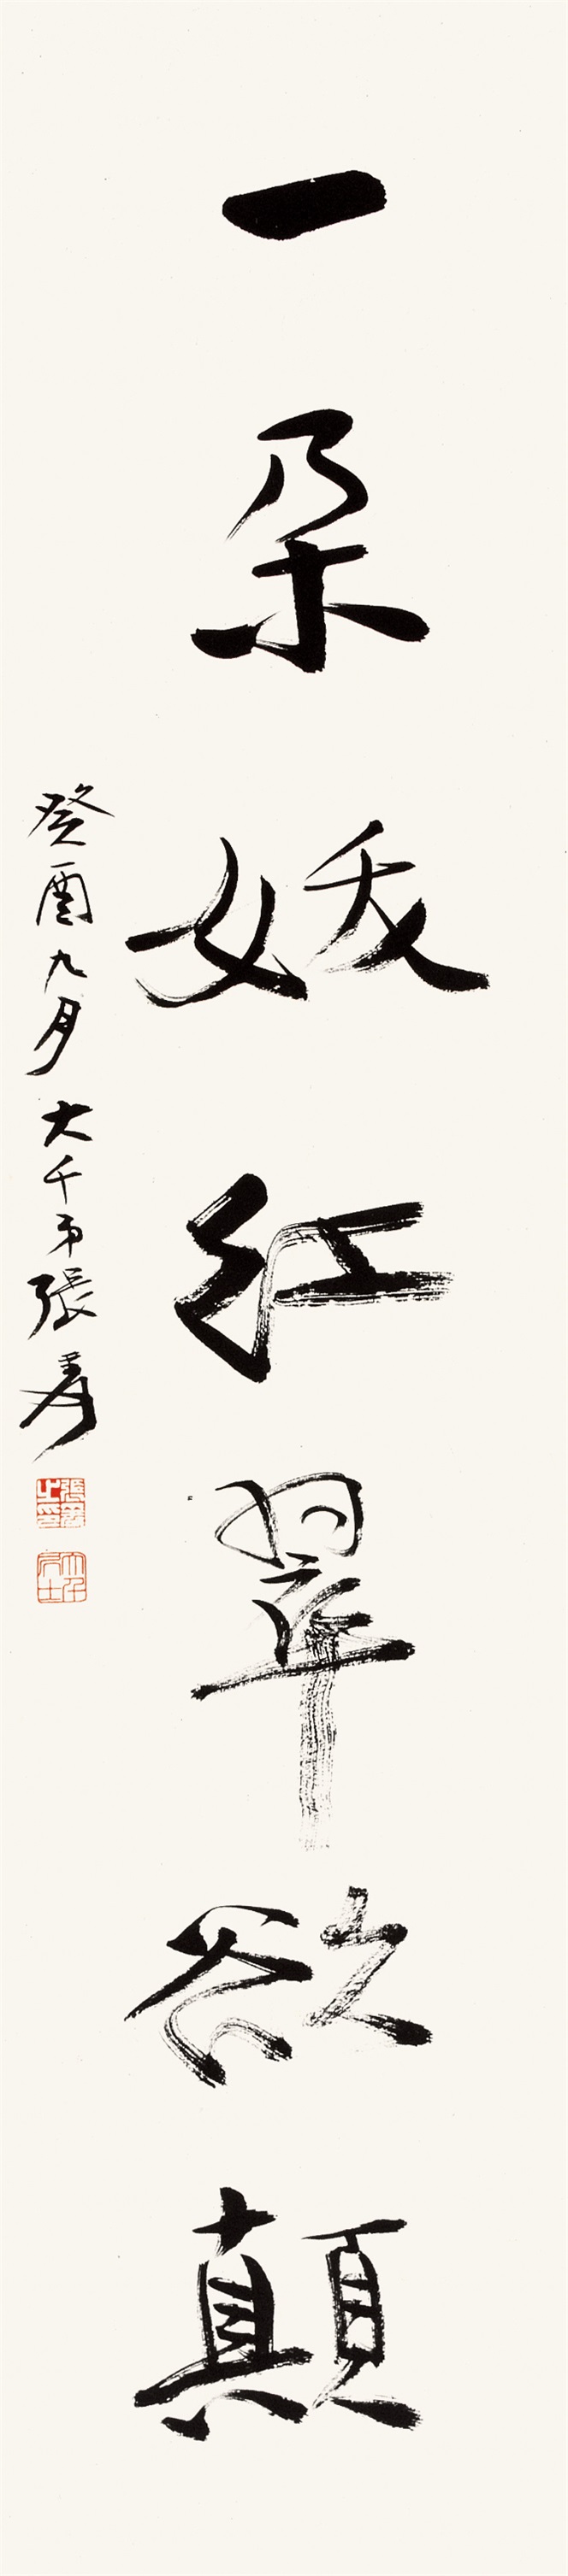 一朵妖紅翠欲顛
癸酉九月大千弟張爰
張爰之印
大千居士